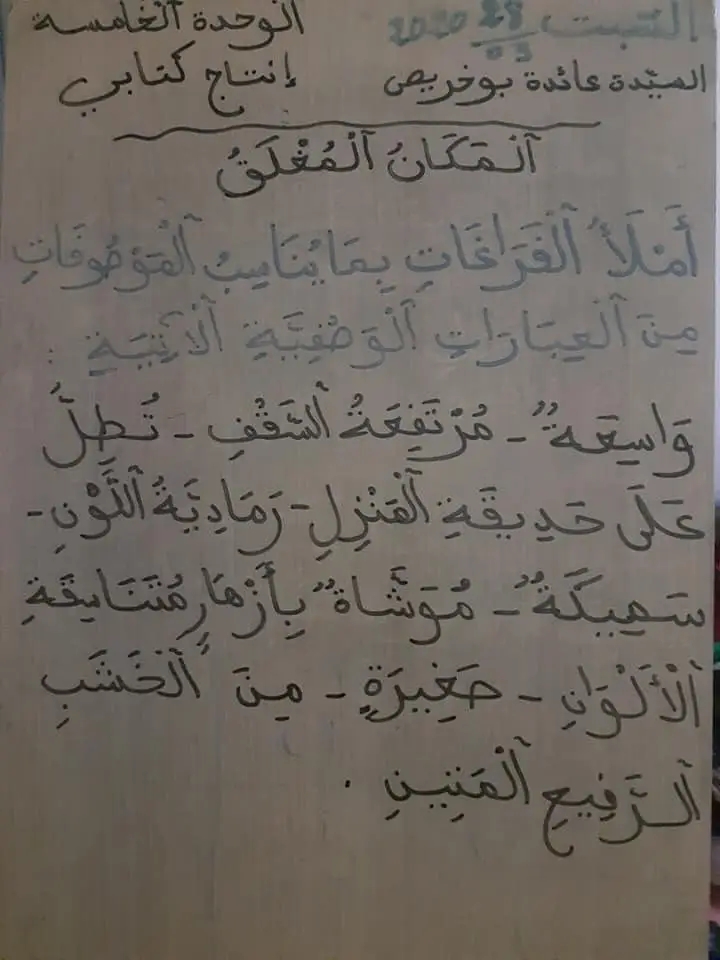 السبت 28/03 2020 الوحدة الخامسة
السيّدة عائدة بوخريص إنتاج كتابي
اَلْمَكَانُ اَلْمُغْلَقُ
أَمْلَأُ اَلْفَرَاغَاتِ بِمَا يُنَاسِبُ اَلْمَوْصُوفَاتِ
مِنَ اَلْعِبَارَاتِ اَلْوَصْفِيَّةِ اَلْآتِيَةِ :
وَاسِعَةٌ - مُرْتَفِعَةُ اَلسَّقْفِ - تُطِلُّ
عَلَى حَدِيقَةِ اَلْمَنْزِلِ - رَمَادِيَّةُ اَللَّوْنِ -
سَمِيكَةٌ - مُوَشَّاةٌ بِأَزْهَارٍ مُتَنَاسِقَةِ
اَلْأَلْوَانِ - صَغِيرَةٍ - مِنَ اَلْخَشَبِ
اَلرَّفِيعِ اَلْمَتِينِ .